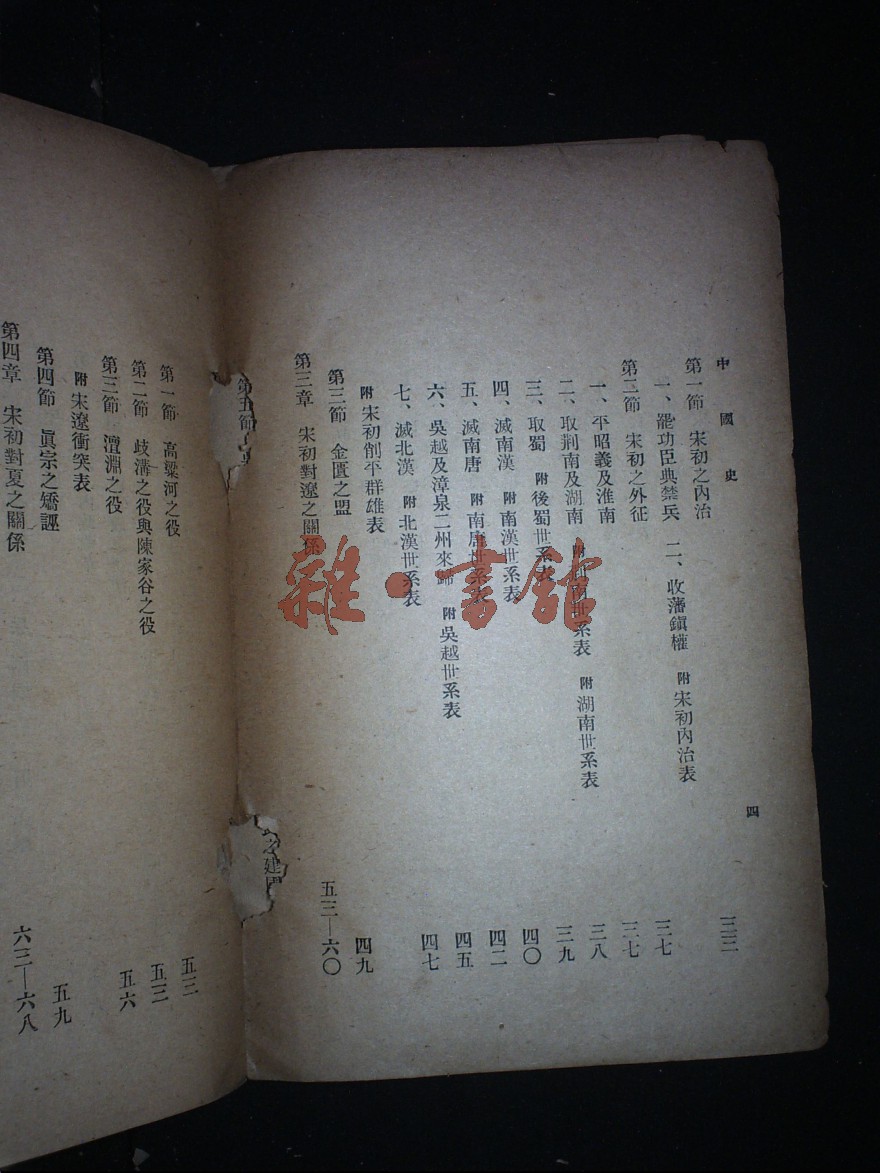 中國史 四
第一節 宋初之內治 三三
一、罷功臣典禁兵 二、收藩鎭權 附 宋初內治表
第二節 宋初之外征 三七
一、平昭義及淮南 三七
二、取荆南及湖南 附 荆南世系表 附 湖南世系表 三八
三、取蜀 附 後蜀世系表 三九
四、滅南漢 附 南漢世系表 四〇
五、滅南唐 附 南唐世系表 四二
六、吳越及漳泉二州來歸 附 吳越世系表 四五
七、滅北漢 附 北漢世系表 四七
附 宋初削平群雄表
第三節 金匱之盟 四九
第三章 宋初對遼之關係 五三—六〇
之建
第一節 高粱河之役 五三
第二節 歧溝之役與陳家谷之役 五三
第三節 澶淵之役 五六
附 宋遼衝突表
第四節 眞宗之矯誣 五九
第四章 宋初對夏之關係 六三—六八
雜·書館